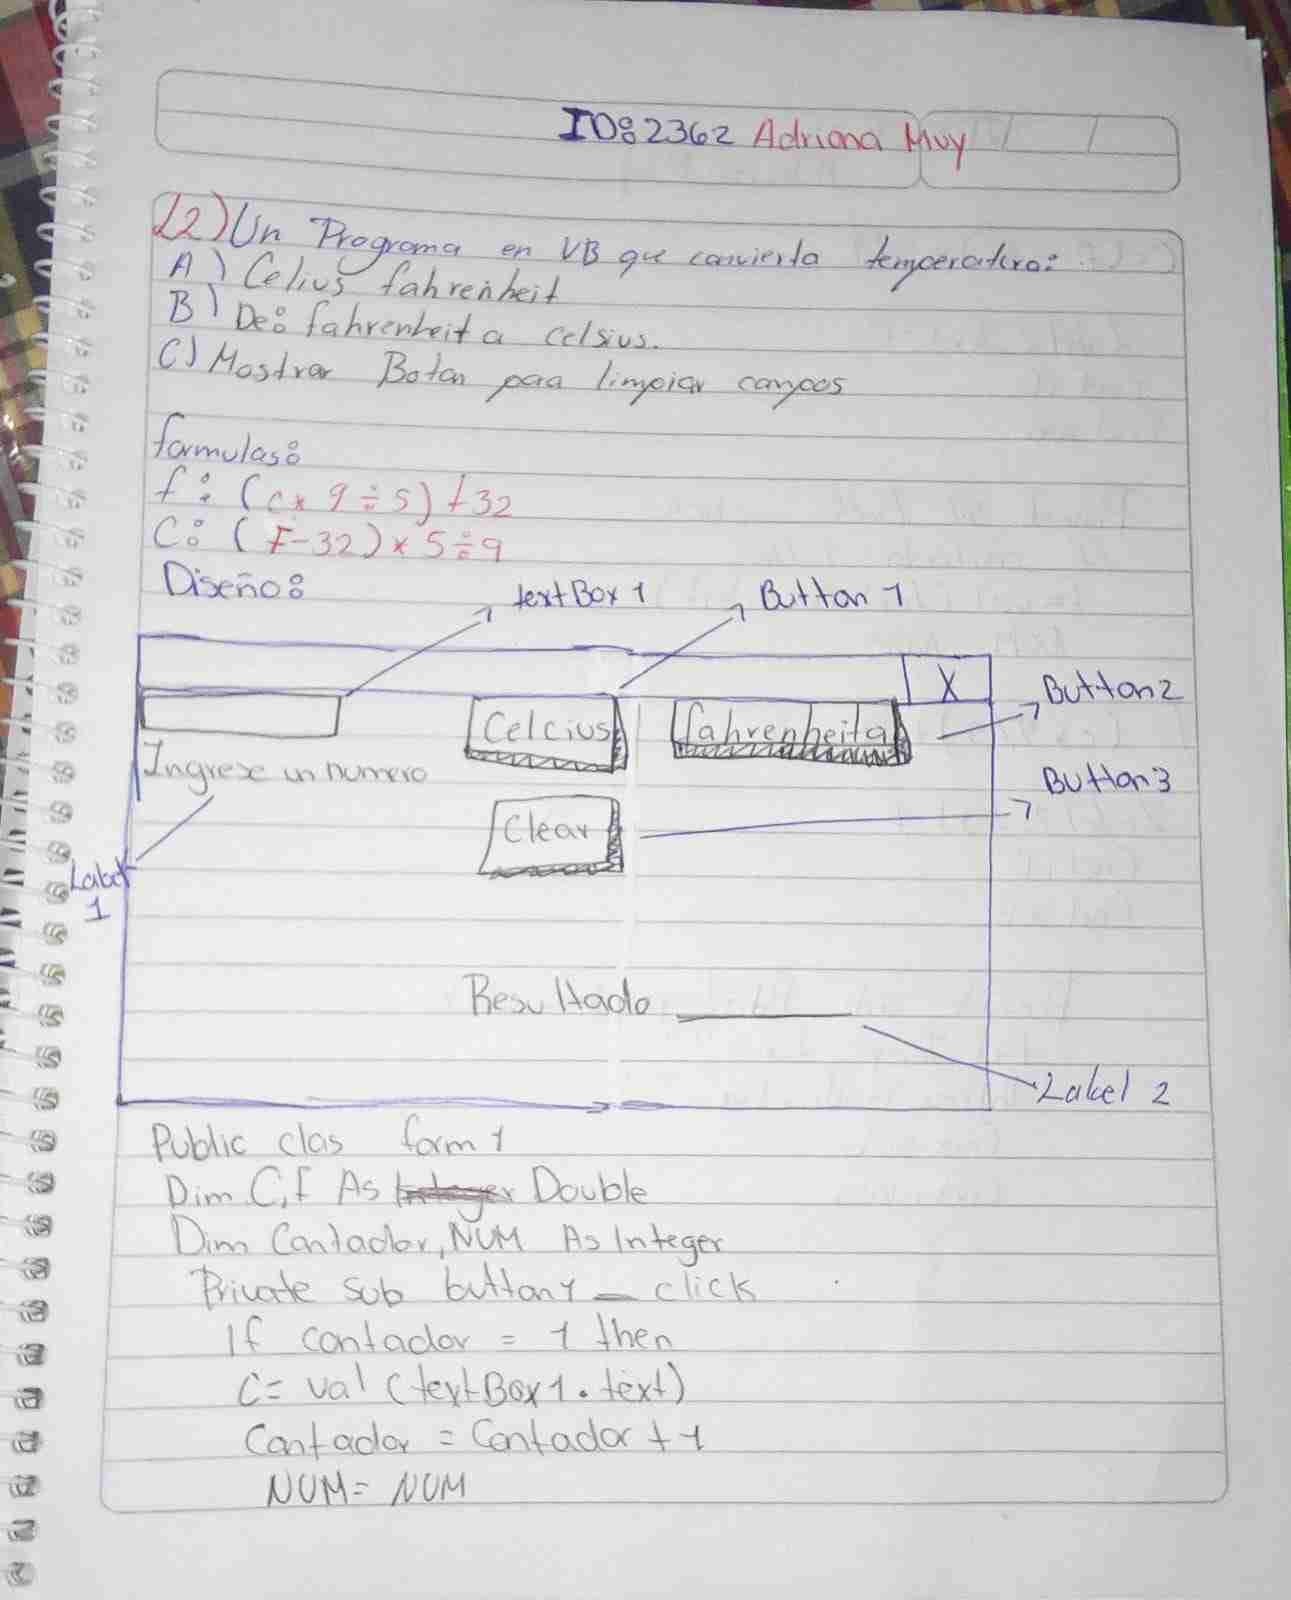 ID:2362 Adriana Muy
22) Un Programa en VB que convierta temperatura:
A) Celius fahrenheit
B) De: fahrenheit a celsius.
C) Mostrar Boton paa limpiar campos
formulas:
f: (c x 9 ÷ 5) + 32
C: (F-32) x 5÷9
Diseño:
textBox 1
Button 1
X
Button2
Celcius
fahrenheita
Ingrese un numero
Button3
Clear
Label 1
Resultado
Label 2
Public clas form 1
Dim C,f As Integer Double
Dim Contador, NUM As Integer
Private sub button1_click
If contador = 1 then
C= val (textBox1.text)
Contador = Contador + 1
NUM= NUM